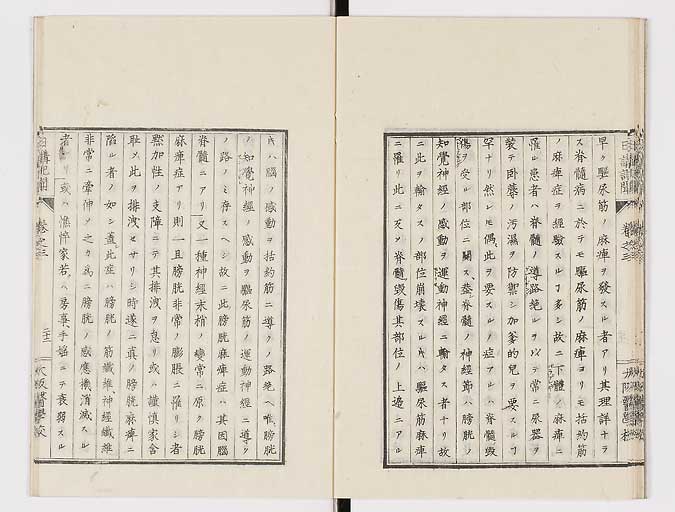 早ク驅尿筋ノ麻痺ヲ發スル者アリ其理詳ナラ
ス脊髓病ニ於テモ驅尿筋ノ麻痺ヨリモ括約筋
ノ麻痺症ヲ經驗スルヿ多シ故ニ下體ノ麻痺ニ
罹ル患者ハ脊髓ノ導路絶ルヲ以テ常ニ尿器ヲ
裝テ臥蓐ノ汚濕ヲ防禦シ加爹的兒ヲ要スルヿ
罕ナリ然レモ偶此ヲ要スルノ症アルハ脊髓毀
傷ヲ受ル部位ニ關ス蓋脊髓ノ神經節ハ膀胱ノ
知覺神經ノ感動ヲ運動神經ニ輸タス者ナリ故
ニ此ヲ輸タスノ部位崩壊スルハ驅尿筋麻痺
ニ罹リ此ニ反ノ脊髓毀傷其部位ノ上邉ニアル
ハ腦ノ感動ヲ括約筋ニ導クノ路絶ヘ唯膀胱
ノ知覺神經ノ感動ヲ筋ノ運動神經ニ導ク
ノ路ノミ存スヘシ故ニ此膀胱麻痺症ハ其因腦
脊髓ニアリ又一種神經末梢ノ變常ニ原ク膀胱
麻痺症アリ則一且膀胱非常ノ膨脹ニ罹リシ者
黙加性ノ支障ニテ其排泄ヲ怠リ或ハ謹慎家舎
耻テ此ヲ排洩セサリシ時遂ニ眞ノ膀胱麻痺ニ
陷ル者ノ如シ蓋此症ハ膀胱ノ筋纖維神經纖維
非常ニ牽伸ノ之カ爲ニ膀胱ノ感應機消滅スル
者アリ或ハ憔悴家若ハ房事手婬ニテ衰弱スル
日講記聞
卷之三
大坂醫學校